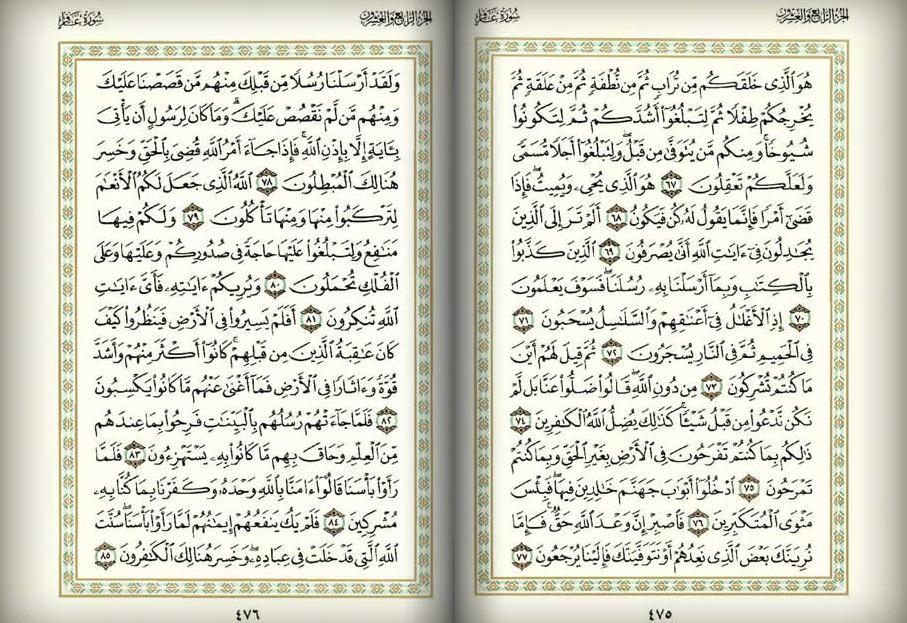 الجزء الرابع والعشرون
سورة غافر
هُوَ ٱلَّذِى خَلَقَكُم مِّن تُرَابٍ ثُمَّ مِن نُّطْفَةٍ ثُمَّ مِنْ عَلَقَةٍ ثُمَّ
يُخْرِجُكُمْ طِفْلًا ثُمَّ لِتَبْلُغُوٓا۟ أَشُدَّكُمْ ثُمَّ لِتَكُونُوا۟
شُيُوخًا ۚ وَمِنكُم مَّن يُتَوَفَّىٰ مِن قَبْلُ ۖ وَلِتَبْلُغُوٓا۟ أَجَلًا مُّسَمًّى
وَلَعَلَّكُمْ تَعْقِلُونَ ٦٧ هُوَ ٱلَّذِى يُحْىِۦ وَيُمِيتُ ۖ فَإِذَا
قَضَىٰٓ أَمْرًا فَإِنَّمَا يَقُولُ لَهُۥ كُن فَيَكُونُ ٦٨ أَلَمْ تَرَ إِلَى ٱلَّذِينَ
يُجَـٰدِلُونَ فِىٓ ءَايَـٰتِ ٱللَّهِ أَنَّىٰ يُصْرَفُونَ ٦٩ ٱلَّذِينَ كَذَّبُوا۟
بِٱلْكِتَـٰبِ وَبِمَآ أَرْسَلْنَا بِهِۦ رُسُلَنَا ۖ فَسَوْفَ يَعْلَمُونَ
٧٠ إِذِ ٱلْأَغْلَـٰلُ فِىٓ أَعْنَـٰقِهِمْ وَٱلسَّلَـٰسِلُ يُسْحَبُونَ ٧١
فِى ٱلْحَمِيمِ ثُمَّ فِى ٱلنَّارِ يُسْجَرُونَ ٧٢ ثُمَّ قِيلَ لَهُمْ أَيْنَ
مَا كُنتُمْ تُشْرِكُونَ ٧٣ مِن دُونِ ٱللَّهِ ۖ قَالُوا۟ ضَلُّوا۟ عَنَّا بَل لَّمْ
نَكُن نَّدْعُوا۟ مِن قَبْلُ شَيْـًٔا ۚ كَذَٰلِكَ يُضِلُّ ٱللَّهُ ٱلْكَـٰفِرِينَ ٧٤
ذَٰلِكُم بِمَا كُنتُمْ تَفْرَحُونَ فِى ٱلْأَرْضِ بِغَيْرِ ٱلْحَقِّ وَبِمَا كُنتُمْ
تَمْرَحُونَ ٧٥ ٱدْخُلُوٓا۟ أَبْوَٰبَ جَهَنَّمَ خَـٰلِدِينَ فِيهَا ۖ فَبِئْسَ
مَثْوَى ٱلْمُتَكَبِّرِينَ ٧٦ فَٱصْبِرْ إِنَّ وَعْدَ ٱللَّهِ حَقٌّ ۚ فَإِمَّا
نُرِيَنَّكَ بَعْضَ ٱلَّذِى نَعِدُهُمْ أَوْ نَتَوَفَّيَنَّكَ فَإِلَيْنَا يُرْجَعُونَ ٧٧
٤٧٥
الجزء الرابع والعشرون
سورة غافر
وَلَقَدْ أَرْسَلْنَا رُسُلًا مِّن قَبْلِكَ مِنْهُم مَّن قَصَصْنَا عَلَيْكَ
وَمِنْهُم مَّن لَّمْ نَقْصُصْ عَلَيْكَ ۗ وَمَا كَانَ لِرَسُولٍ أَن يَأْتِىَ
بِـَٔايَةٍ إِلَّا بِإِذْنِ ٱللَّهِ ۚ فَإِذَا جَآءَ أَمْرُ ٱللَّهِ قُضِىَ بِٱلْحَقِّ وَخَسِرَ
هُنَالِكَ ٱلْمُبْطِلُونَ ٧٨ ٱللَّهُ ٱلَّذِى جَعَلَ لَكُمُ ٱلْأَنْعَـٰمَ
لِتَرْكَبُوا۟ مِنْهَا وَمِنْهَا تَأْكُلُونَ ٧٩ وَلَكُمْ فِيهَا
مَنَـٰفِعُ وَلِتَبْلُغُوا۟ عَلَيْهَا حَاجَةً فِى صُدُورِكُمْ وَعَلَيْهَا وَعَلَى
ٱلْفُلْكِ تُحْمَلُونَ ٨٠ وَيُرِيكُمْ ءَايَـٰتِهِۦ فَأَىَّ ءَايَـٰتِ
ٱللَّهِ تُنكِرُونَ ٨١ أَفَلَمْ يَسِيرُوا۟ فِى ٱلْأَرْضِ فَيَنظُرُوا۟ كَيْفَ
كَانَ عَـٰقِبَةُ ٱلَّذِينَ مِن قَبْلِهِمْ ۚ كَانُوٓا۟ أَكْثَرَ مِنْهُمْ وَأَشَدَّ
قُوَّةً وَءَاثَارًا فِى ٱلْأَرْضِ فَمَآ أَغْنَىٰ عَنْهُم مَّا كَانُوا۟ يَكْسِبُونَ
٨٢ فَلَمَّا جَآءَتْهُمْ رُسُلُهُم بِٱلْبَيِّنَـٰتِ فَرِحُوا۟ بِمَا عِندَهُم
مِّنَ ٱلْعِلْمِ وَحَاقَ بِهِم مَّا كَانُوا۟ بِهِۦ يَسْتَهْزِءُونَ ٨٣ فَلَمَّا
رَأَوْا۟ بَأْسَنَا قَالُوٓا۟ ءَامَنَّا بِٱللَّهِ وَحْدَهُۥ وَكَفَرْنَا بِمَا كُنَّا بِهِۦ
مُشْرِكِينَ ٨٤ فَلَمْ يَكُ يَنفَعُهُمْ إِيمَـٰنُهُمْ لَمَّا رَأَوْا۟ بَأْسَنَا ۖ سُنَّتَ
ٱللَّهِ ٱلَّتِى قَدْ خَلَتْ فِى عِبَادِهِۦ ۖ وَخَسِرَ هُنَالِكَ ٱلْكَـٰفِرُونَ ٨٥
٤٧٦